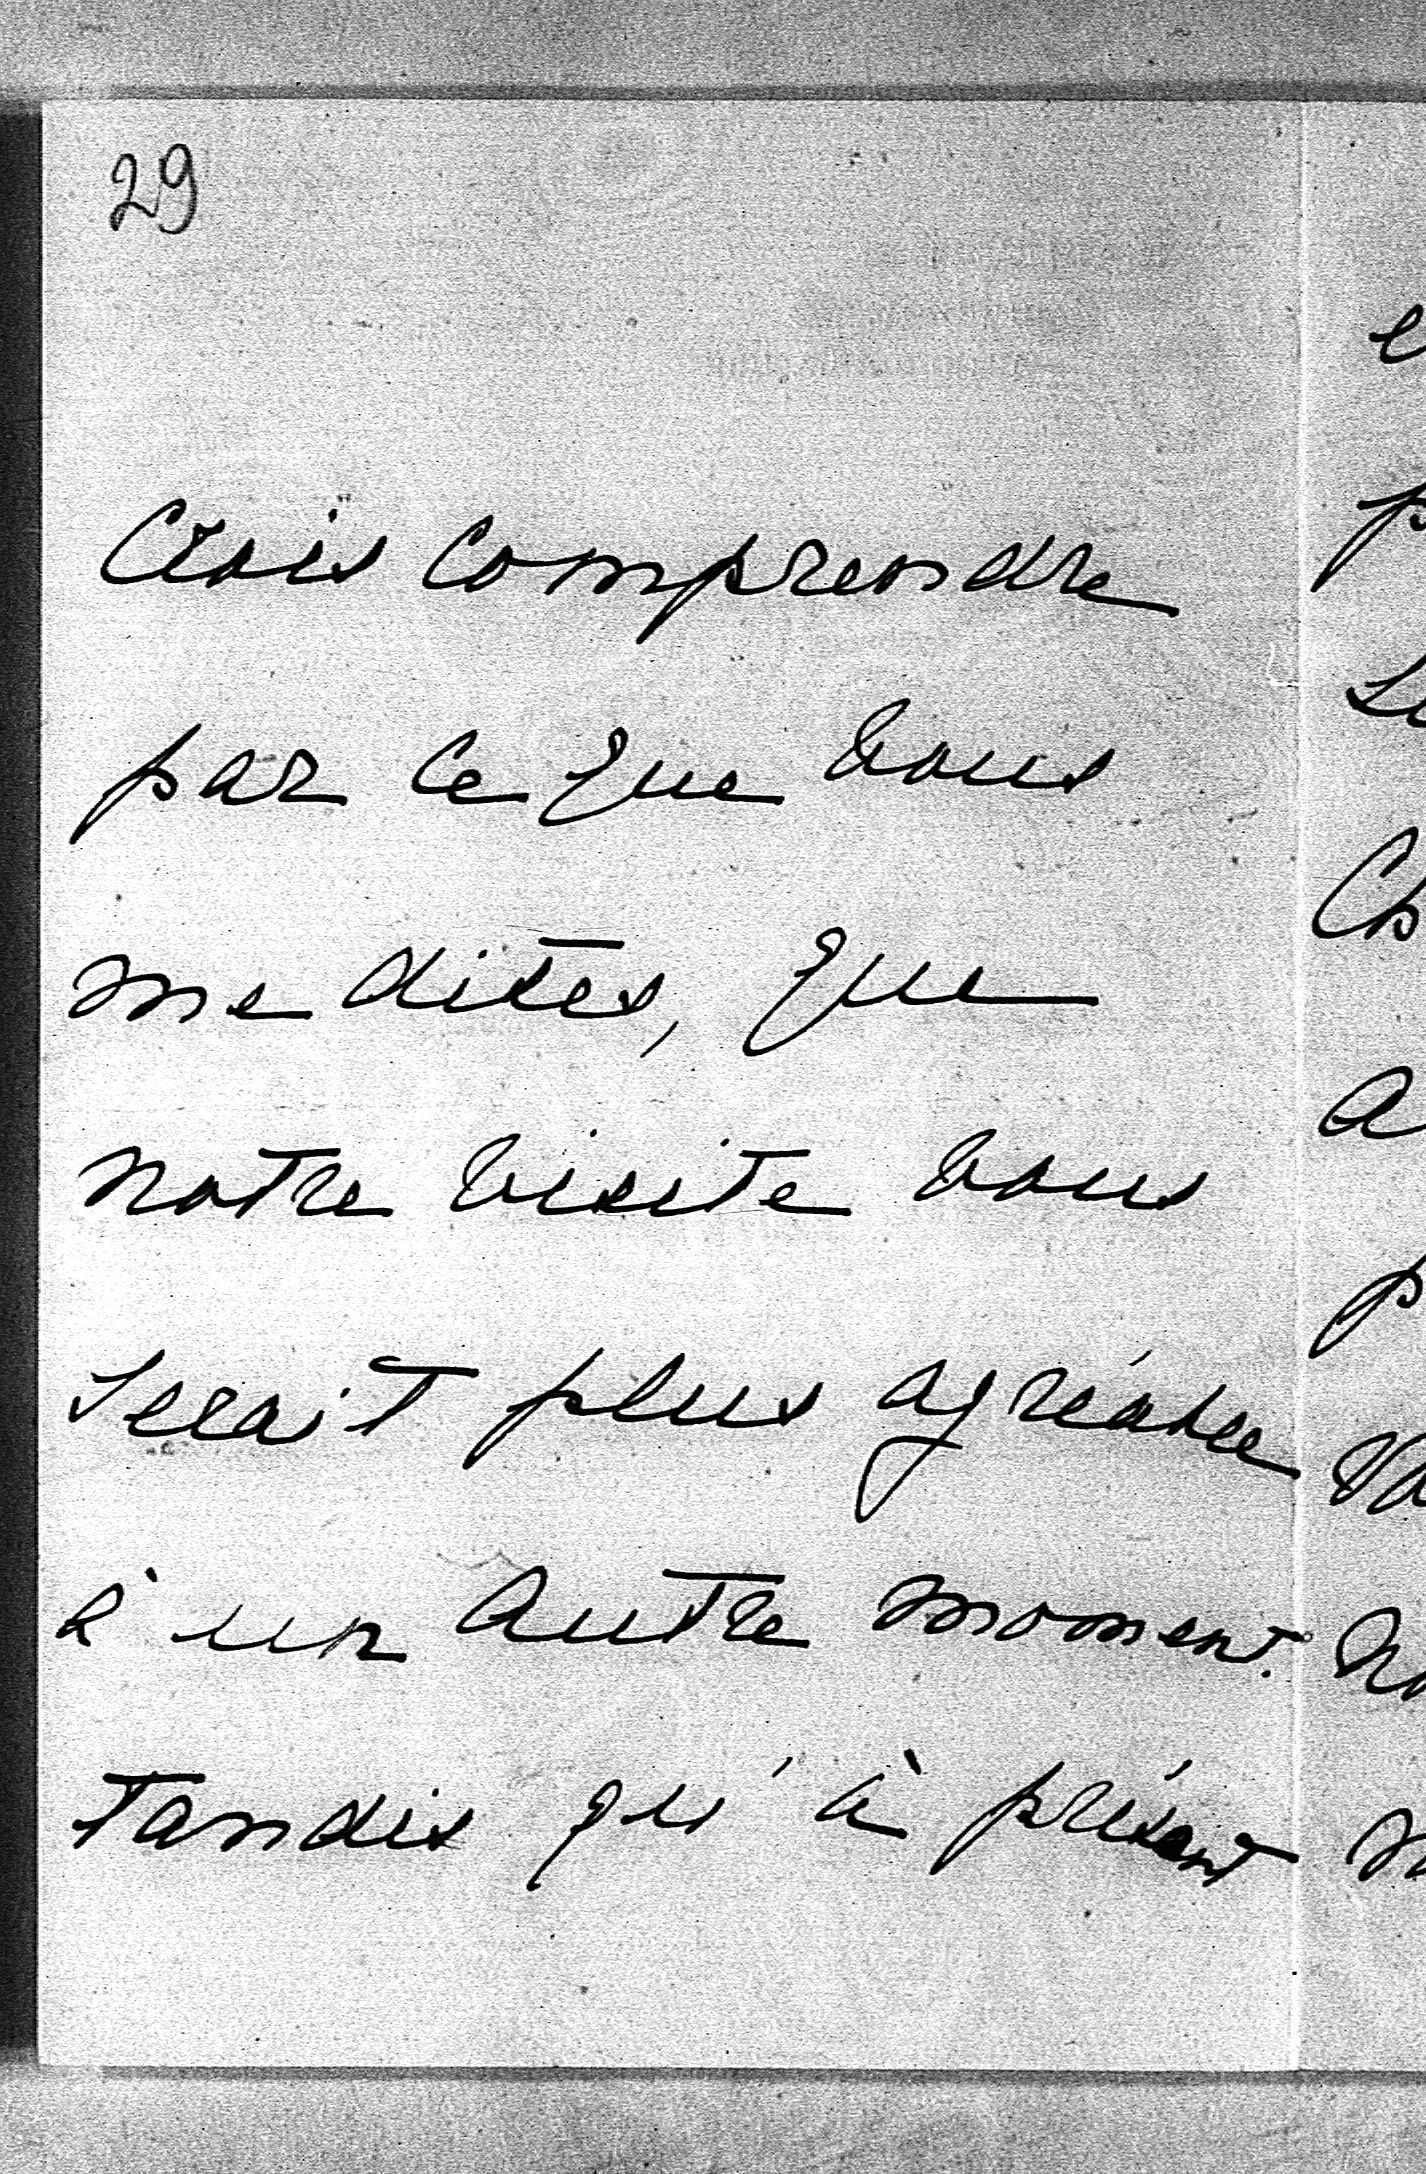 29
Crois comprendre
par ce que vous
me dites, que
notre visite vous
serait plus agréable
à un autre moment.
Tandis qu'à présent